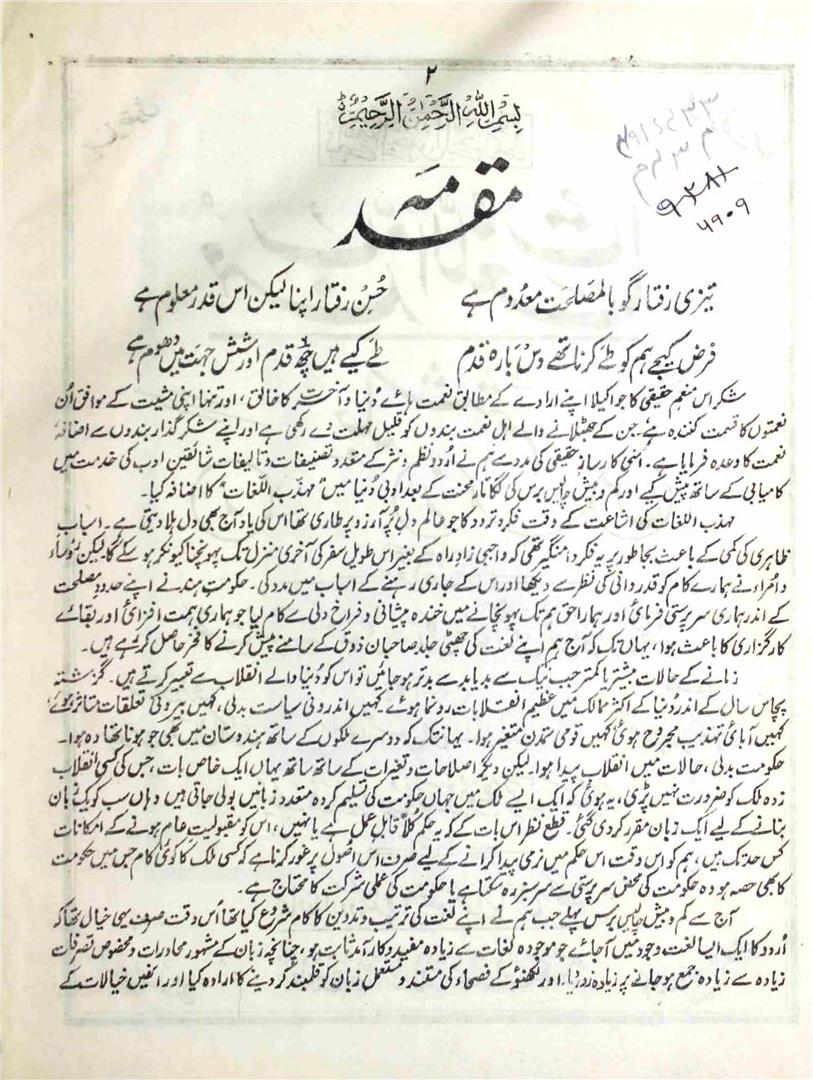 ۲
بِسْمِ اللّٰہِ الرَّحْمٰنِ الرَّحِیْمِ
مقدمہ
تیزی رفتار گو بالمصلحت معدوم ہے حُسنِ رفتار اپنا لیکن اس قدر معلوم ہے
فرض کیجے ہم کو طے کرنا تھے دس بارہ قدم طے کیے ہیں چھ قدم اور شش جہت میں دھوم ہے
شکر اس منعمِ حقیقی کا جو اکیلا اپنے ارادے کے مطابق نعمت ہائے دُنیا و آخرت کا خالق، اور تنہا اپنی مشیت کے موافق اُن
نعمتوں کا قسمت کنندہ ہے جن کے جھٹلانے والے اہل نعمت بندوں کو قلیل مہلت دے رکھی ہے اور اپنے شکر گذار بندوں سے اضافۂ
نعمت کا وعدہ فرمایا ہے۔ اُسی کارسازِ حقیقی کی مدد سے ہم نے اُردو نظم و نثر کے متعدد تصنیفات و تالیفات شائقین ادب کی خدمت میں
کامیابی کے ساتھ پیش کیے اور کم و بیش چالیس برس کی لگاتار محنت کے بعد ادبی دُنیا میں "مہذب اللّغات" کا اضافہ کیا۔
مہذب اللغات کی اشاعت کے وقت فکر و تردد کا جو عالم دلِ پُر آرزو پر طاری تھا اس کی یاد آج بھی دل ہلا دیتی ہے۔ اسباب
ظاہری کی کمی کے باعث بجا طور پر یہ فکر دامنگیر تھی کہ واجبی زادِ راہ کے بغیر اس طویل سفر کی آخری منزل تک پہونچنا کیونکر ہو سکے گا لیکن رُوساء
و امُراء نے ہمارے کام کو قدردانی کی نظر سے دیکھا اور اس کے جاری رہنے کے اسباب میں مدد کی۔ حکومتِ ہند نے اپنے حدودِ مصلحت
کے اندر ہماری سرپرستی فرمائی اور ہمارا حق ہم تک پہونچانے میں خندہ پیشانی و فراخ دلی سے کام لیا جو ہماری ہمت افزائی اور بقائے
کارگزاری کا باعث ہوا، یہاں تک کہ آج ہم اپنے لغت کی چھٹی جلد صاحبانِ ذوق کے سامنے پیش کرنے کا فخر حاصل کر رہے ہیں۔
زمانے کے حالات بیشتر یا کمتر جب نیک سے بد یا بد سے بدتر ہو جائیں تو اس کو دُنیا والے انقلاب سے تعبیر کرتے ہیں۔ گزشتہ
پچاس سال کے اندر دُنیا کے اکثر ممالک میں عظیم انقلابات رونما ہوئے۔ کہیں اندرونی سیاست بدلی، کہیں بیرونی تعلقات متاثر ہوئے،
کہیں آبائی تہذیب مجروح ہوئی کہیں قومی تمدن متغیر ہوا۔ یہاں تک کہ دوسرے ملکوں کے ساتھ ہندوستان میں بھی جو ہونا تھا وہ ہوا۔
حکومت بدلی، حالات میں انقلاب پیدا ہوا۔ لیکن دیگر اصلاحات و تغیرات کے ساتھ ساتھ یہاں ایک خاص بات، جس کی کسی انقلاب
زدہ ملک کو ضرورت نہیں پڑی، یہ ہوئی کہ ایک ایسے ملک میں جہاں حکومت کی تسلیم کردہ متعدد زبانیں بولی جاتی ہیں وہاں سب کو یک زبان
بنانے کے لیے ایک زبان مقرر کر دی گئی۔ قطع نظر اس بات کے کہ یہ حکم کلاً قابلِ عمل ہے یا نہیں، اس کو مقبولیتِ عام ہونے کے امکانات
کس حد تک ہیں، ہم کو اس وقت اس حکم میں نرمی پیدا کرانے کے لیے صرف اس اصُول پر غور کرنا ہے کہ کسی ملک کا کوئی کام جس میں حکومت
کا بھی حصہ ہو وہ حکومت کی محض سرپرستی سے سرسبز رہ سکتا ہے یا حکومت کی عملی شرکت کا محتاج ہے۔
آج سے کم و بیش چالیس برس پہلے جب ہم نے اپنے لغت کی ترتیب و تدوین کا کام شروع کیا تھا اُس وقت صرف یہی خیال تھا کہ
اُردو کا ایک ایسا لغت وجود میں آجائے جو موجودہ لغات سے زیادہ مفید و کارآمد ثابت ہو، چنانچہ زبان کے مشہور محاورات و مخصوص تصرفات
زیادہ سے زیادہ جمع ہو جانے پر زیادہ زور دیا۔ اور لکھنؤ کے فصحاء کی مستند و مستعمل زبان کو قلمبند کر دینے کا ارادہ کیا اور انھیں خیالات کے
۵۹۰۹